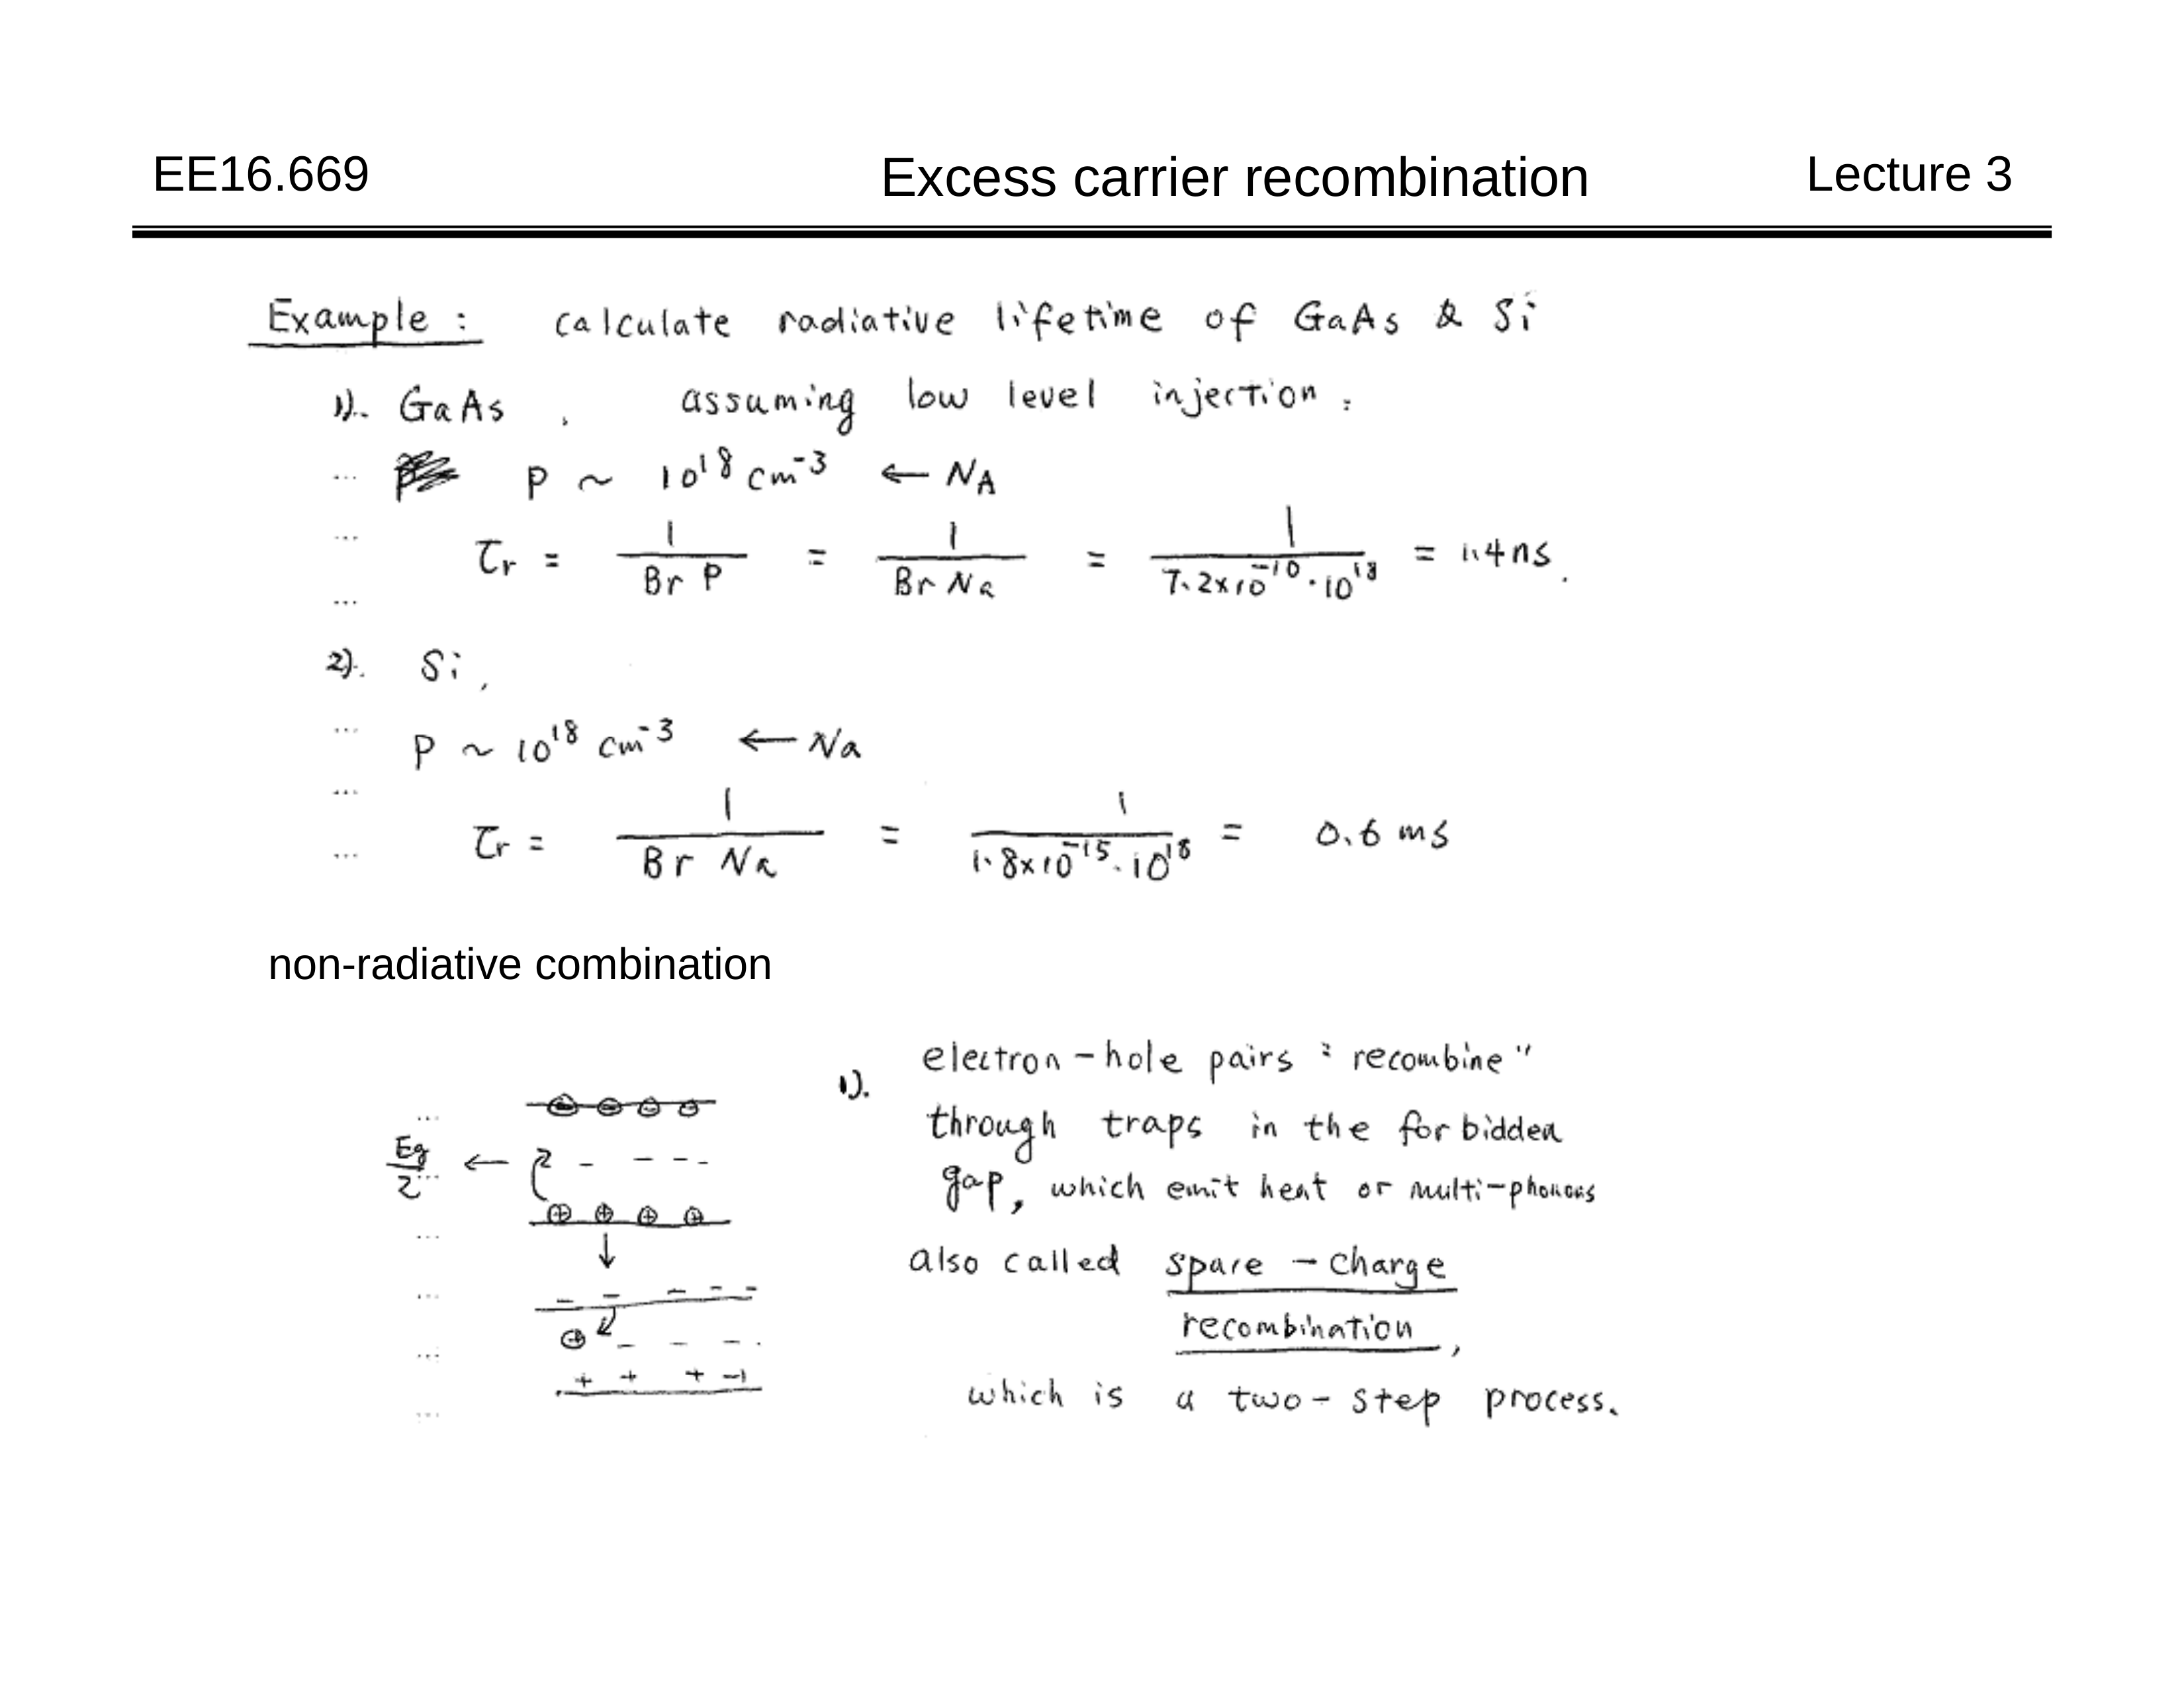 EE16.669 Excess carrier recombination Lecture 3
Example : calculate radiative lifetime of GaAs & Si
1). GaAs , assuming low level injection .
... P ~ 10^18 cm^-3 ← NA
... τr = 1/(Br P) = 1/(Br Na) = 1/(7.2x10^-10 · 10^18) = 1.4ns .
...
2). Si ,
... P ~ 10^18 cm^-3 ← Na
...
... τr = 1/(Br Na) = 1/(1.8x10^-15 . 10^18) = 0.6 ms
non-radiative combination
1). electron - hole pairs " recombine "
through traps in the forbidden
gap, which emit heat or multi-phonons
also called space - charge
recombination ,
which is a two - step process.
...
Eg/2 ←
...
...
...
...
...